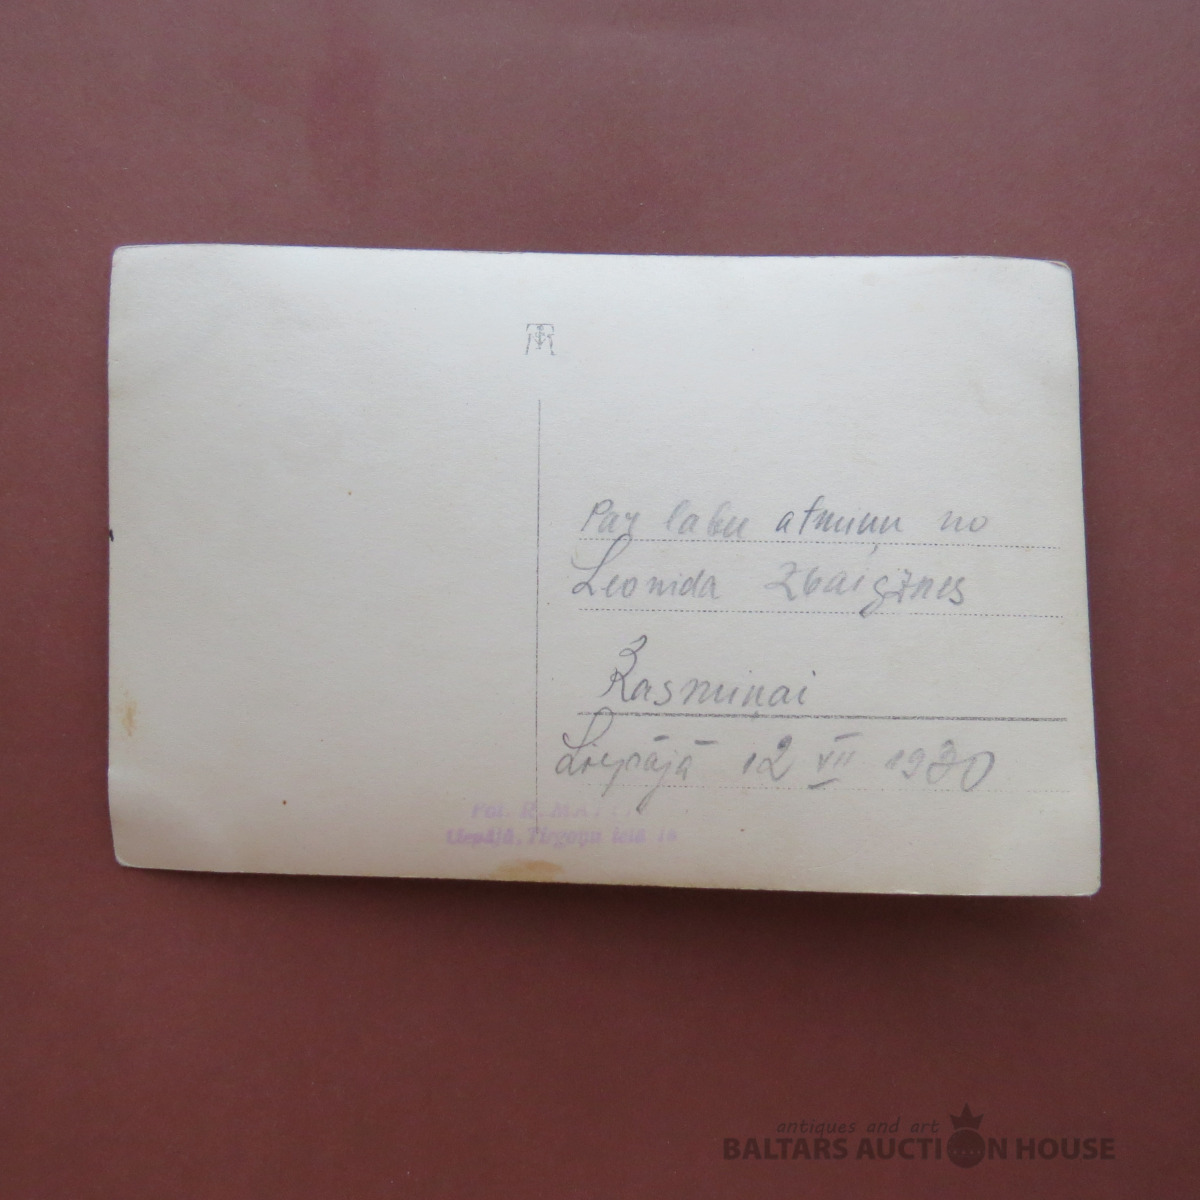 Par labu atmiņu no
Leonida Zvaigznes
Rasmiņai
Liepājā 12 VII 1930
Liepājā, Tirgoņu ielā
antiques and art
BALTARS AUCTION HOUSE